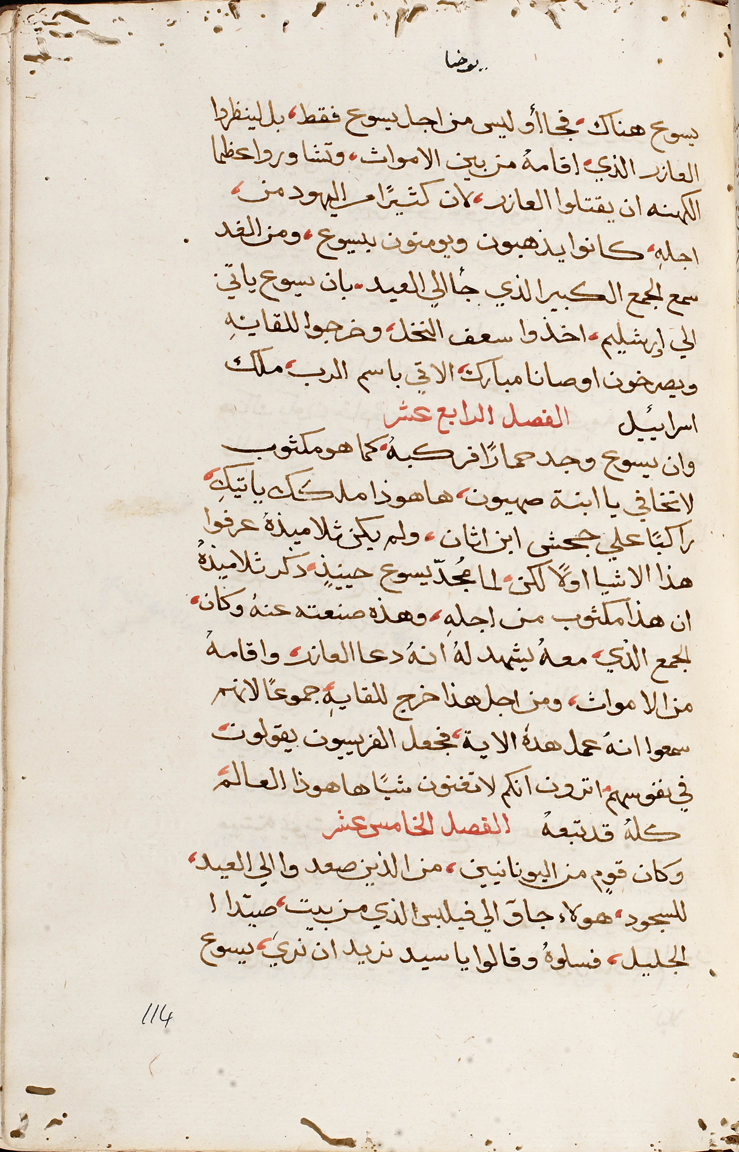 يوحنا
يسوع هناك، فجااو ليس من اجل يسوع فقط، بل لينظروا
العازر الذي، اقامهُ من بين الاموات، وتشاوروا عظما
الكهنه ان يقتلوا العازر، لان كثيرًا من اليهود من،
اجلهِ، كانوا يذهبون ويومنون بيسوع، ومن الغد
سمع الجمع الكبير الذي جا الي العيد، بان يسوع ياتي
الي إرشليم، اخذوا سعف النخل، وخرجوا للقايهِ
ويصرخون اوصانا مبارك، الاتي باسم الرب، ملك
اسراييل الفصل الرابع عشر
وان يسوع وجد حمارًا فركبهُ، كما هو مكتوب
لا تخافي يا ابنة صهيون، ها هوذا ملكك ياتيكِ،
راكبًا علي جحش ابن اتان، ولم يكن تلاميذهُ عرفوا
هذا الاشيا اولًا لكن، لما مُجدّ يسوع حينيذٍ، ذكر تلاميذهُ
ان هذا مكتوب من اجلهِ، وهذه صنعته عنهُ وكان،
الجمع الذي، معهُ يشهد لهُ انهُ دعا العازر، واقامهُ
من الاموات، ومن اجل هذا خرج للقايهِ، جموعًا لانهم
سمعوا انهُ عمل هدهُ الاية، فجعل الفريسيون يقولون
في نفوسهم، اترون انكم لا تغنون شيًا ها هوذا العالم
كلهُ قد تبعهُ الفصل الخامس عشر
وكان قومٍ من اليونانيين، من الذين صعدوا الي العيد،
للسجود، هولاء جاوّ الي فيلبس الذي من بيت، صيّدا ا
لجليل، فسلوهُ وقالوا يا سيد نريد ان نري، يسوع
114